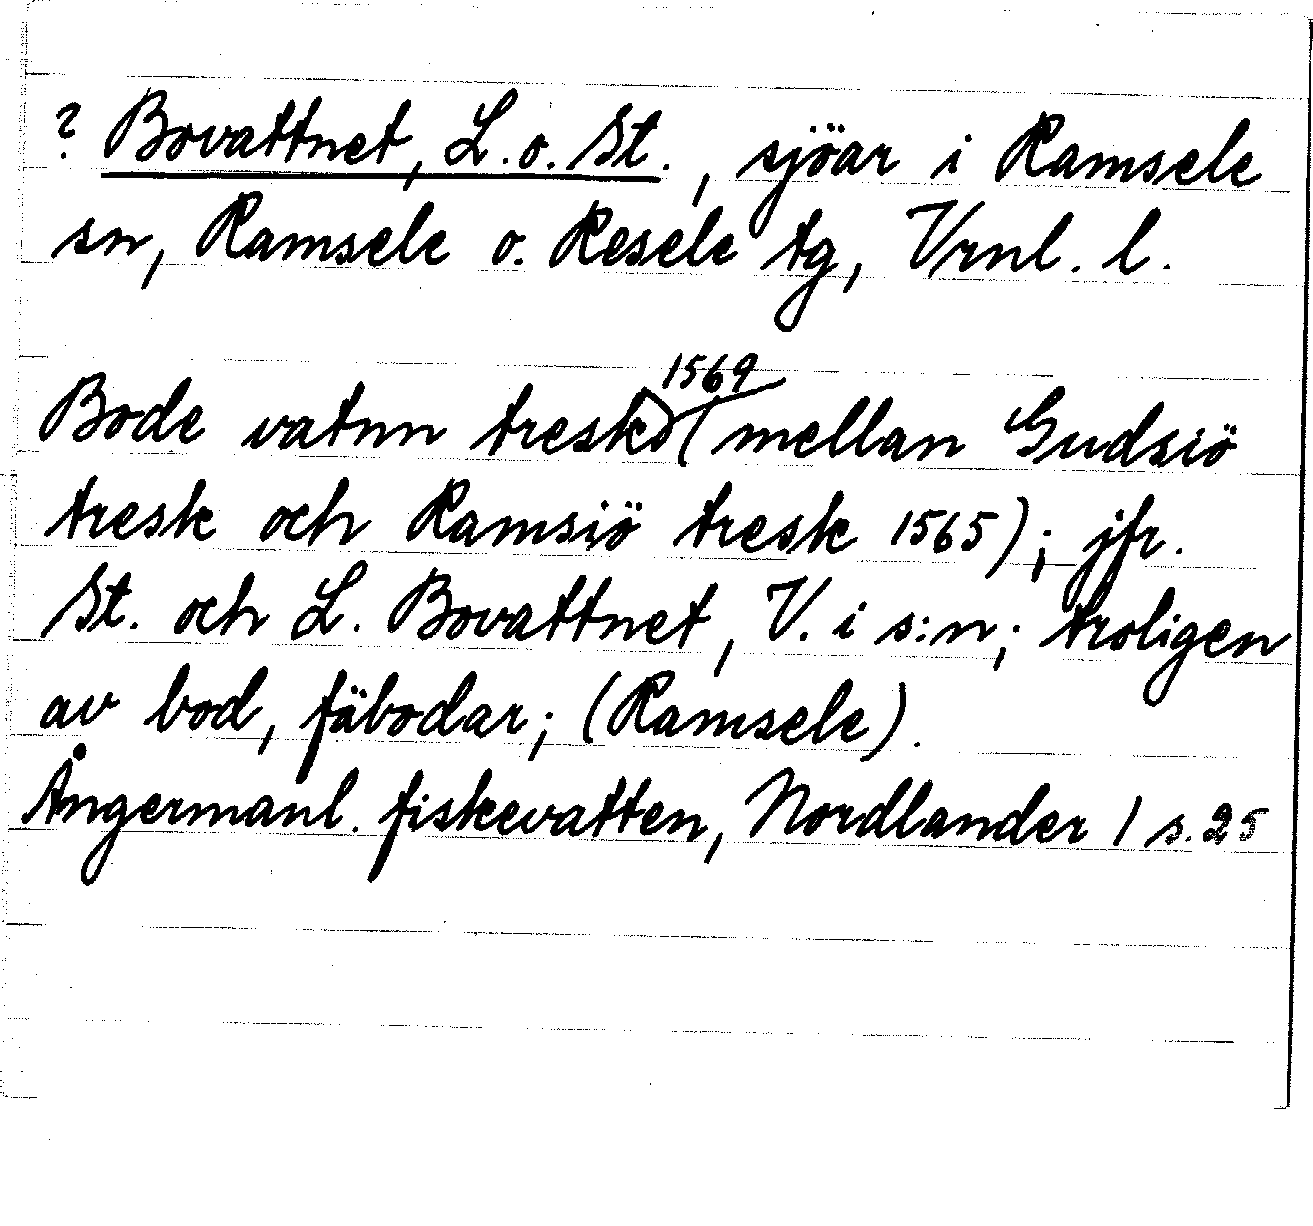 ? Bovattnet, L. o. St., sjöar i Ramsele
sn, Ramsele o. Resele tg, Vrnl. l.
Bode vatnn tresk 1569 (mellan Gudsiö
tresk och Ramsiö tresk 1565); jfr.
St. och L. Bovattnet, V. i s:n; troligen
av bod, fäbodar; (Ramsele).
Ångermanl. fiskevatten, Nordlander 1 s. 25